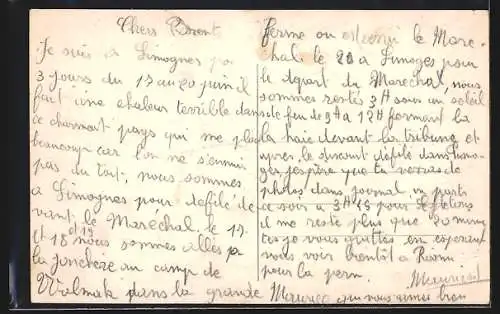 Chers Parents
Je suis à Limognes pr
3 jours du 17 au 20 juin il
fait une chaleur terrible dans
ce charmant pays qui me plai
beaucoup car l'on ne s'ennui
pas du tout, nous sommes
a Limognes pour défilé de
vant le Maréchal. le 17.
et 18 et 19 nous sommes allés pr
la Jonchère au camp de
Walmak dans la grande
ferme ou le Mare
chal. le 20 a Limoges pour
le départ du Maréchal, nous
sommes restés 3H sous un soleil
de feu de 9H a 12H formant la
la haie devant la tribune et
apres le defilé dans Limo
ges, j'espère que tu verras de
photos dans journal, on parts
ce soir a 3H 15 pour
il me reste plus que 20 minu
tes je vous quittes en espérant
nous voir bientôt a
pour la perm. Maurice
Maurice qui vous aimes bien